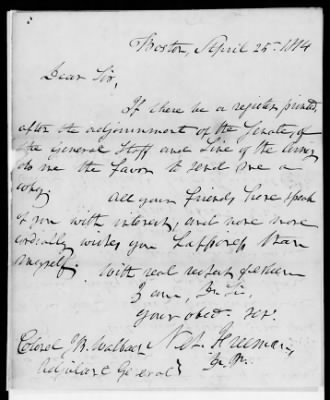 Boston, April 25th 1814
Dear Sir,
If there be a register printed
after the adjournment of the Senate, of
the General Staff and Line of the Army
do me the favor to send me a
copy.
All your friends here speak
of you with interest, and none more
cordially wishes you happiness than
myself.
With real respect
Dear Sir,
Your obed. Ser.
Colonel J B. Walbach
Adjutant General